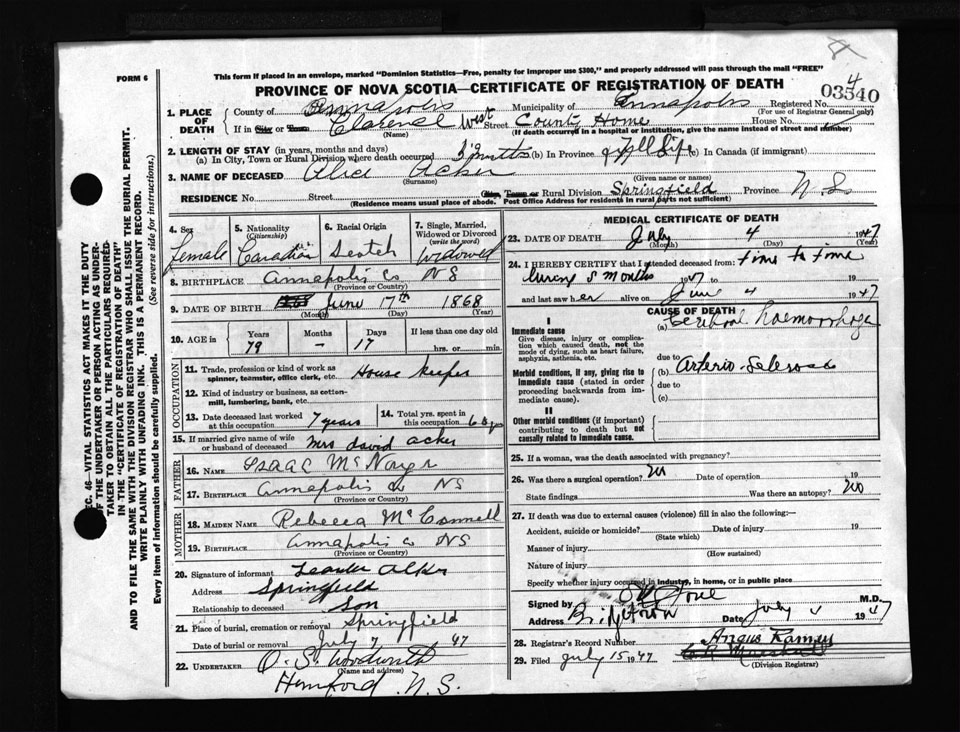 FORM 6
This form if placed in an envelope, marked "Dominion Statistics—Free, penalty for improper use $300," and properly addressed will pass through the mail "FREE"
PROVINCE OF NOVA SCOTIA—CERTIFICATE OF REGISTRATION OF DEATH
4
03540
1. PLACE OF DEATH County of Annapolis Municipality of Annapolis Registered No.
(For use of Registrar General only)
If in City or Town Clarence West Street County Home House No.
(Name) (If death occurred in a hospital or institution, give the name instead of street and number)
2. LENGTH OF STAY (in years, months and days)
(a) In City, Town or Rural Division where death occurred (b) In Province Life (c) In Canada (if immigrant)
3. NAME OF DECEASED Alice Acker
(Surname) (Given name or names)
RESIDENCE No. Street City, Town or Rural Division Springfield Province N.S.
(Residence means usual place of abode. Post Office Address for residents in rural parts not sufficient)
4. Sex 5. Nationality (Citizenship) 6. Racial Origin 7. Single, Married, Widowed or Divorced (write the word)
Female Canadian Scotch Widowed
8. BIRTHPLACE Annapolis Co NS
(Province or Country)
9. DATE OF BIRTH June 17th 1868
(Month) (Day) (Year)
10. AGE in Years Months Days If less than one day old
79 - 17 hrs. or min.
OCCUPATION
11. Trade, profession or kind of work as spinner, teamster, office clerk, etc. House keeper
12. Kind of industry or business, as cotton-mill, lumbering, bank, etc.
13. Date deceased last worked at this occupation 7 years 14. Total yrs. spent in this occupation
15. If married give name of wife or husband of deceased Mrs David Acker
FATHER
16. NAME Isaac
17. BIRTHPLACE Annapolis Co NS
(Province or Country)
MOTHER
18. MAIDEN NAME Rebecca McConnell
19. BIRTHPLACE Annapolis Co NS
(Province or Country)
20. Signature of informant
Address Springfield
Relationship to deceased Son
21. Place of burial, cremation or removal Springfield
Date of burial or removal July 7 47
22. UNDERTAKER O. S. Woodworth
(Name and address)
Hemford N.S.
MEDICAL CERTIFICATE OF DEATH
23. DATE OF DEATH July 4 1947
(Month) (Day) (Year)
24. I HEREBY CERTIFY that I attended deceased from: time to time
during 5 Months 1947 19
and last saw her alive on June 4 1947
CAUSE OF DEATH
I
Immediate cause (a) Cerebral haemorrhage
Give disease, injury or complication which caused death, not the mode of dying, such as heart failure, asphyxia, asthenia, etc.
due to
Morbid conditions, if any, giving rise to immediate cause (stated in order proceeding backwards from immediate cause).
(b) Arterio-Sclerosis
due to
(c)
II
Other morbid conditions (if important) contributing to death but not causally related to immediate cause.
25. If a woman, was the death associated with pregnancy?
26. Was there a surgical operation? no Date of operation 19
State findings Was there an autopsy? no
27. If death was due to external causes (violence) fill in also the following:—
Accident, suicide or homicide? Date of injury 19
(State which)
Manner of injury
(How sustained)
Nature of injury
Specify whether injury occurred in industry, in home, or in public place
Signed by M.D.
Address Bridgetown Date July 4 1947
28. Registrar's Record Number Angus Ramey
29. Filed July 15 1947
(Division Registrar)
SEC. 46—VITAL STATISTICS ACT MAKES IT THE DUTY OF THE UNDERTAKER OR PERSON ACTING AS UNDERTAKER TO OBTAIN ALL THE PARTICULARS REQUIRED IN THE "CERTIFICATE OF REGISTRATION OF DEATH"
AND TO FILE THE SAME WITH THE DIVISION REGISTRAR WHO SHALL ISSUE THE BURIAL PERMIT.
WRITE PLAINLY WITH UNFADING INK. THIS IS A PERMANENT RECORD.
Every item of Information should be carefully supplied. (See reverse side for instructions.)